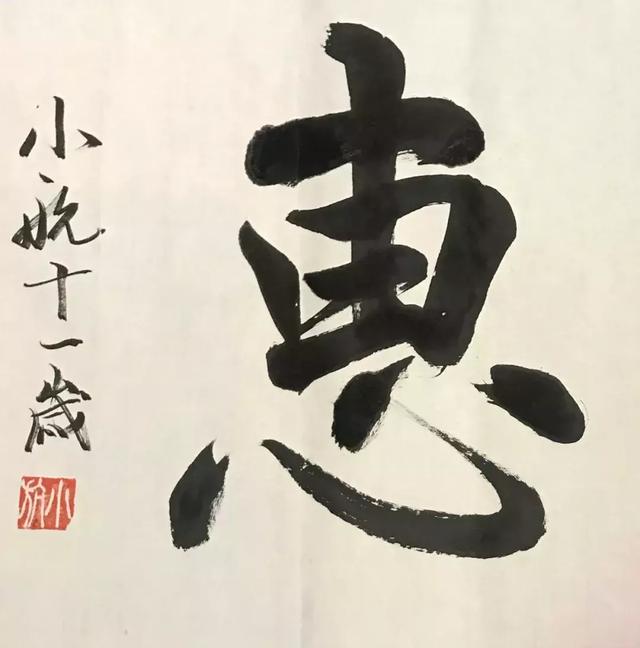 惠
小航十一歲
小航